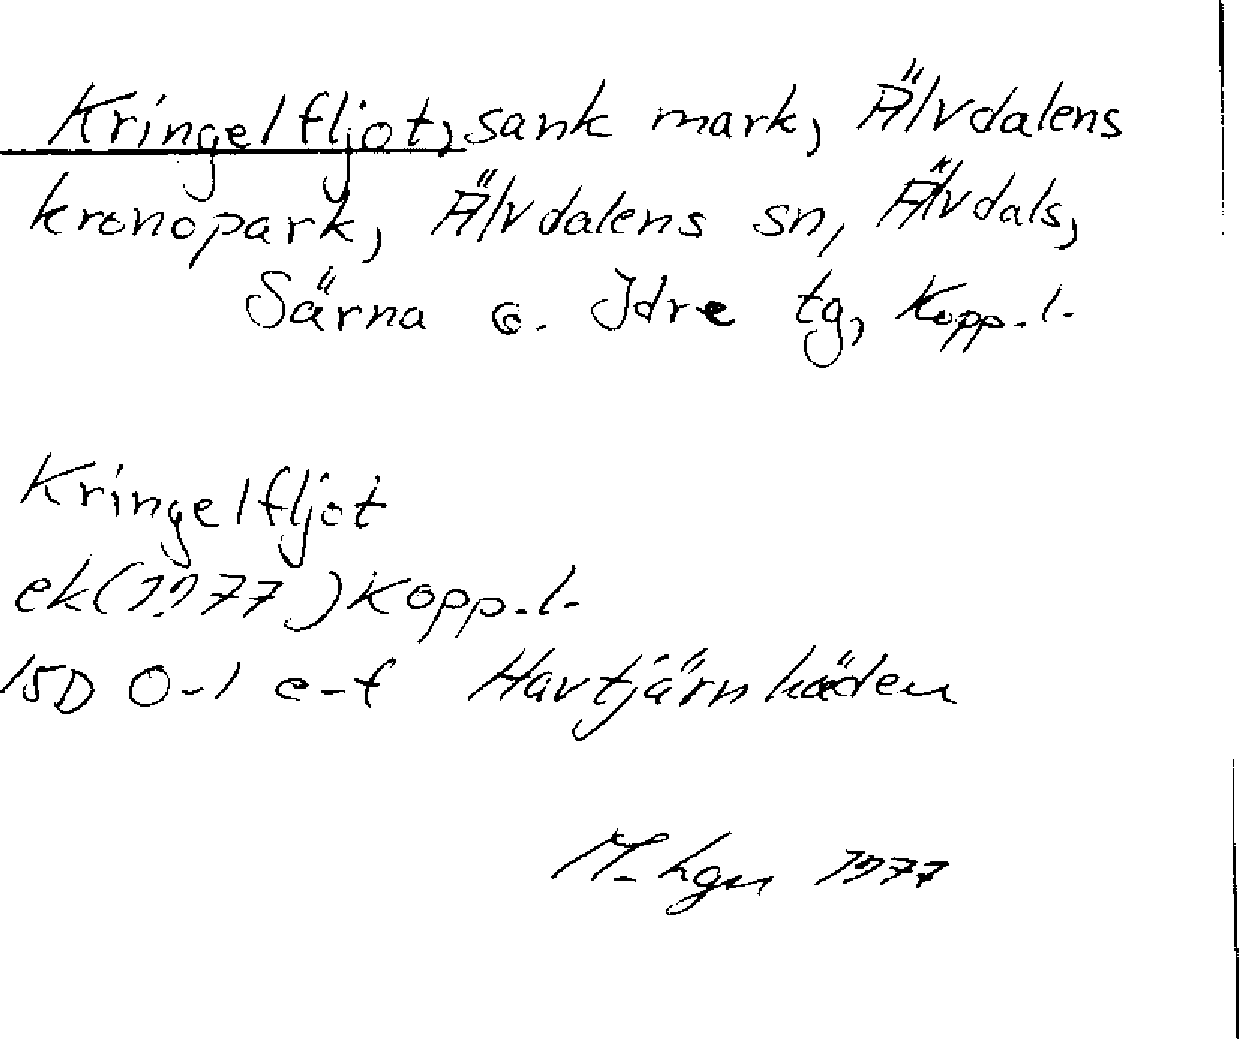 Kringelfljot, sank mark, Älvdalens
kronopark, Älvdalens sn, Älvdals,
Särna o. Idre tg, Kopp. l.
Kringelfljot
ek(1977) Kopp. l.
15D 0-1 e-f Havtjärnhäden
M. Lgn 1977